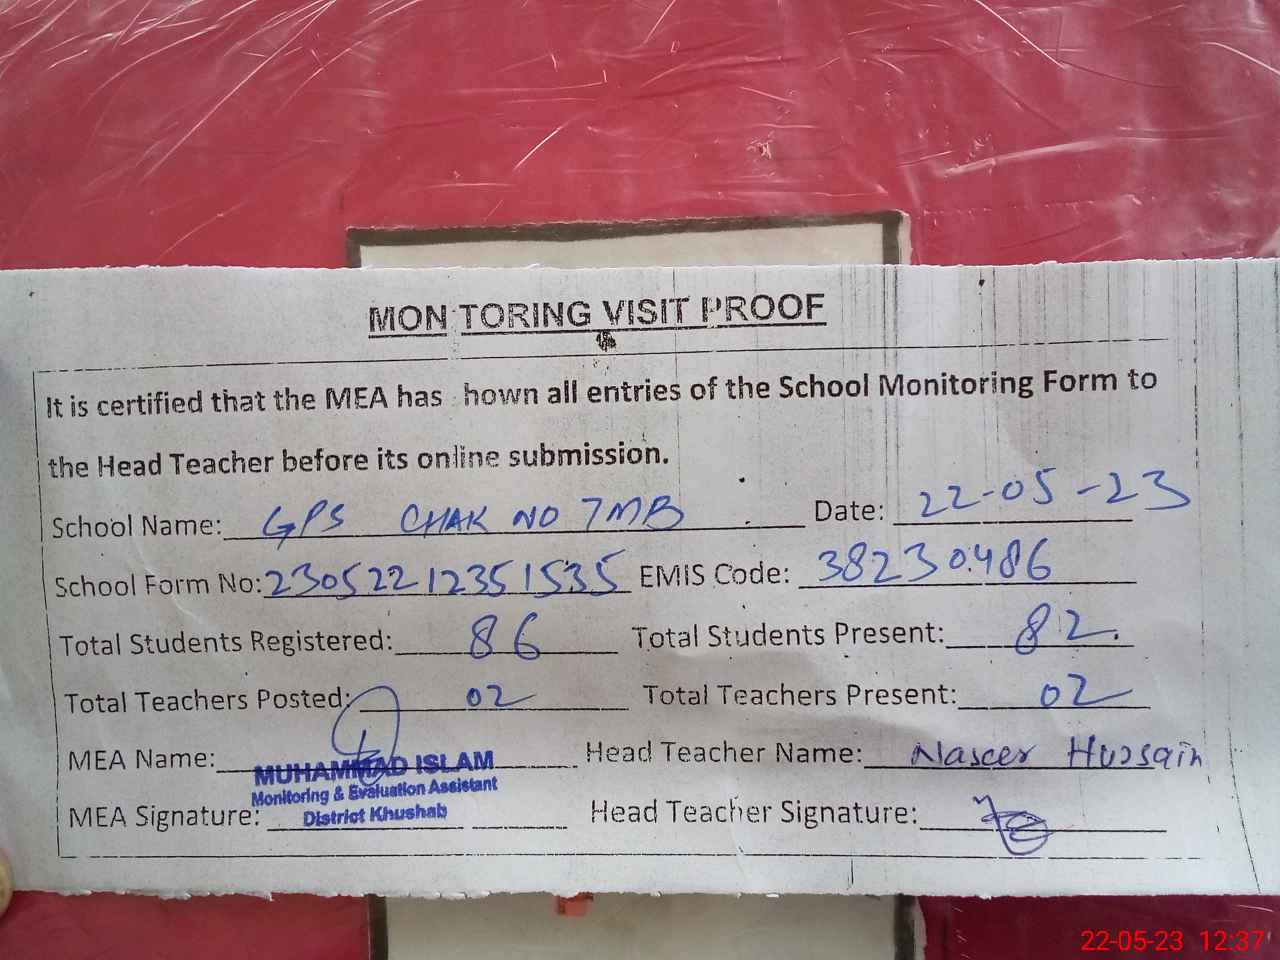 MONITORING VISIT PROOF
It is certified that the MEA has hown all entries of the School Monitoring Form to
the Head Teacher before its online submission.
School Name: GPS CHAK NO 7MB Date: 22-05-23
School Form No: 23052212351535 EMIS Code: 38230486
Total Students Registered: 86 Total Students Present: 82.
Total Teachers Posted: 02 Total Teachers Present: 02
MEA Name: Head Teacher Name: Naseer Hussain
MUHAMMAD ISLAM
Monitoring & Evaluation Assistant
District Khushab
MEA Signature: Head Teacher Signature:
22-05-23 12:37